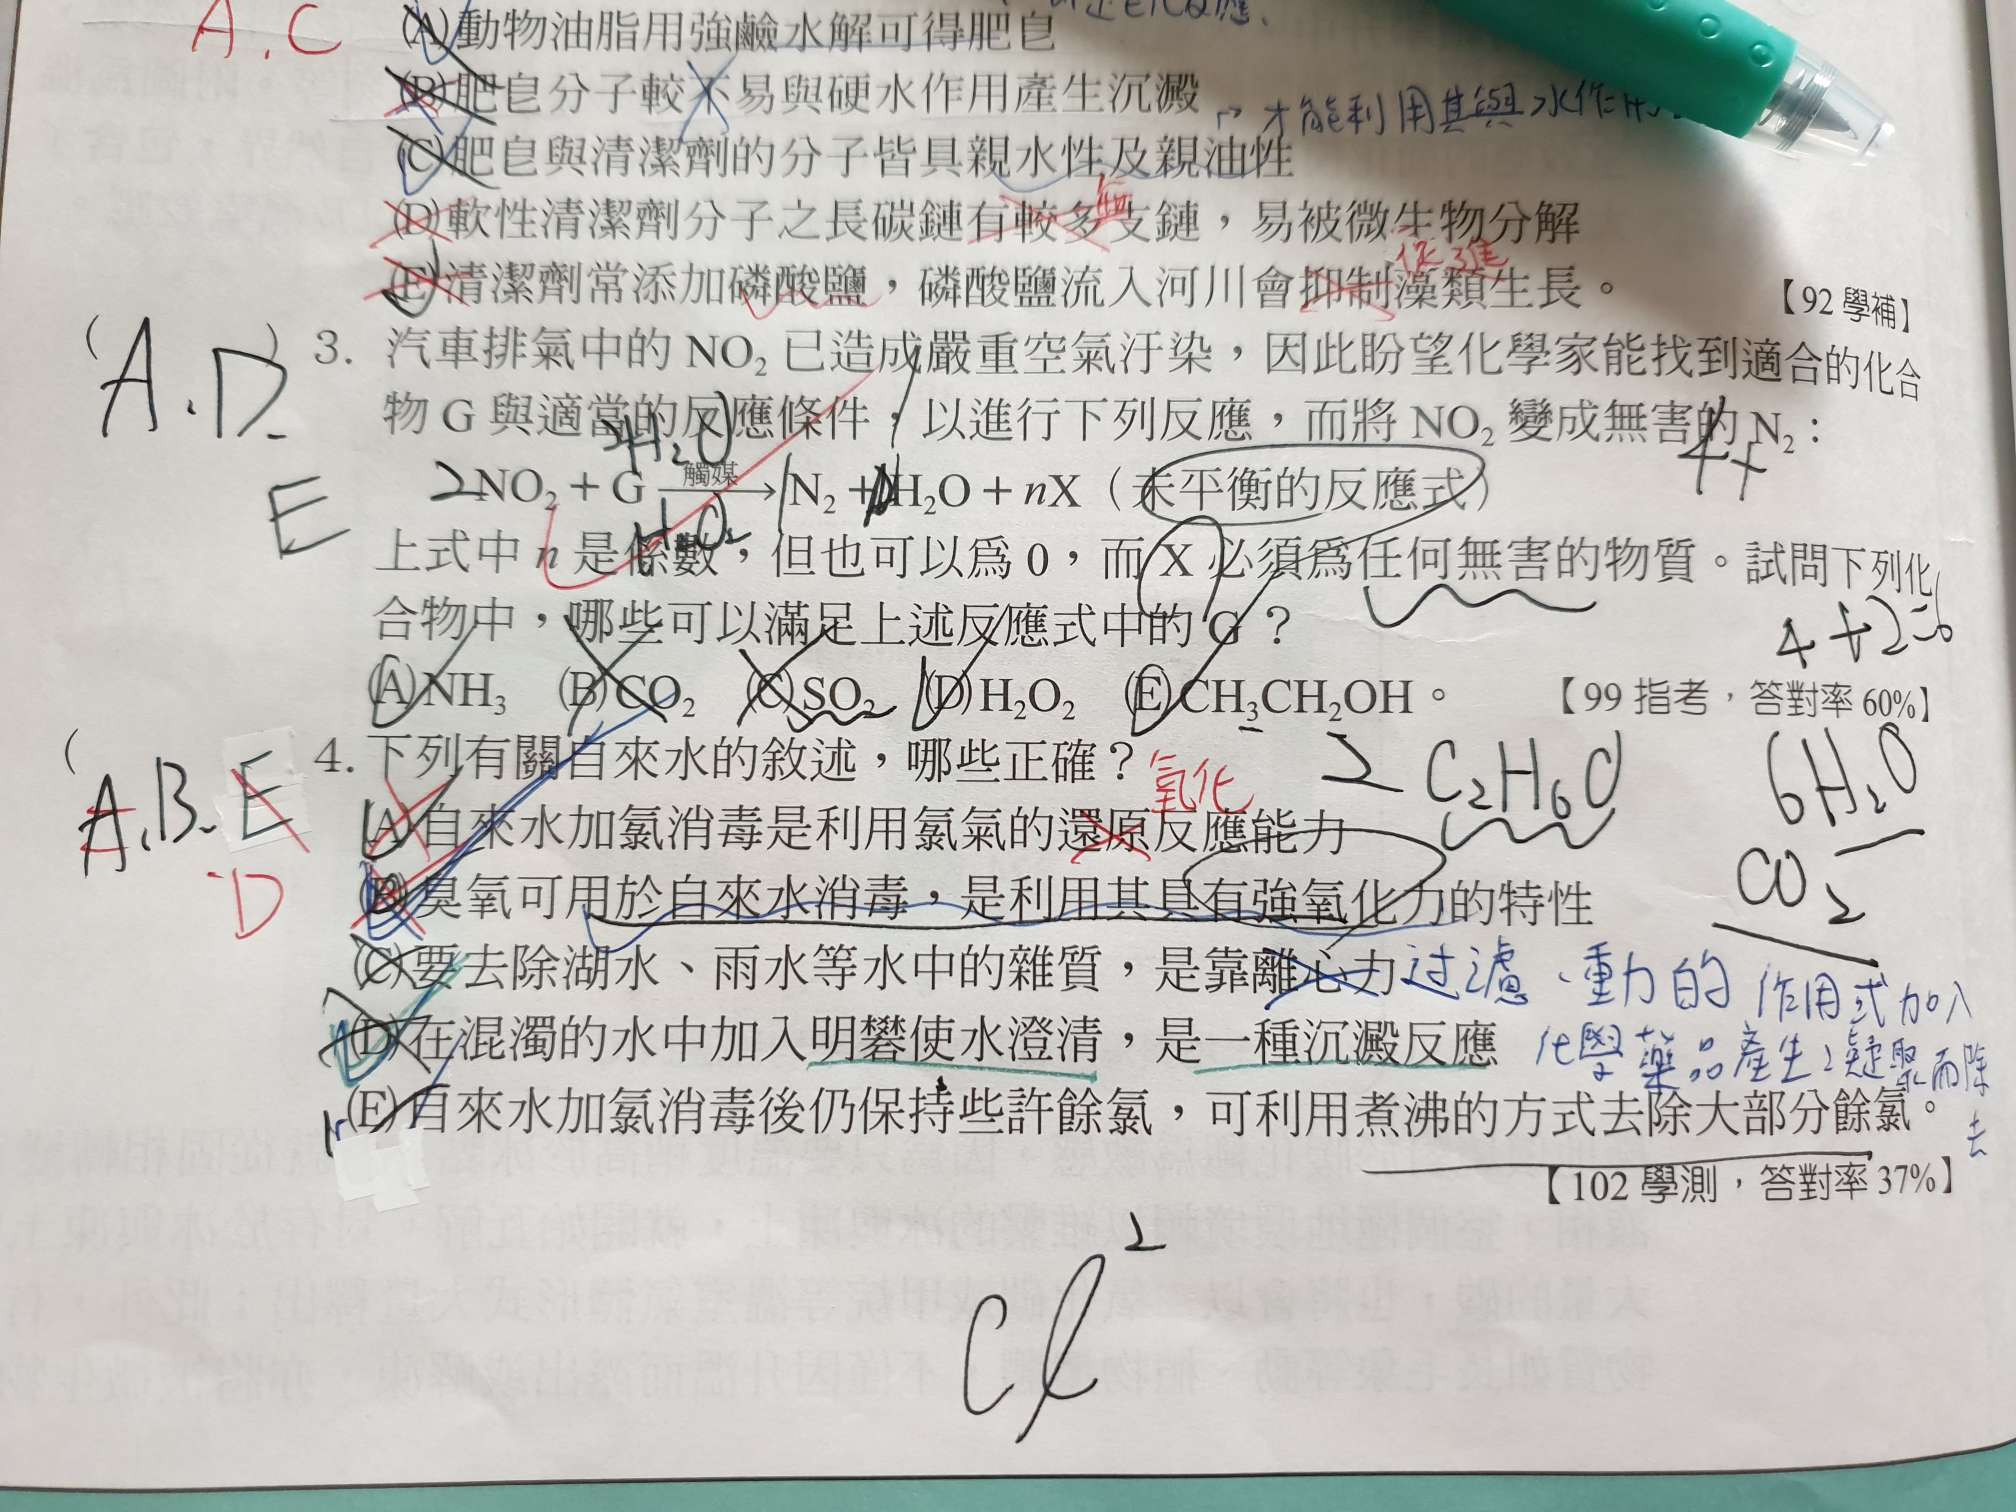 A.C
(A)動物油脂用強鹼水解可得肥皂
(B)肥皂分子較不易與硬水作用產生沉澱
才能利用其與水作用
(C)肥皂與清潔劑的分子皆具親水性及親油性
無
(D)軟性清潔劑分子之長碳鏈有較多支鏈，易被微生物分解
促進
(E)清潔劑常添加磷酸鹽，磷酸鹽流入河川會抑制藻類生長。
【92 學補】
(A.D.E
3. 汽車排氣中的 NO₂ 已造成嚴重空氣汙染，因此盼望化學家能找到適合的化合
物 G 與適當的反應條件，以進行下列反應，而將 NO₂ 變成無害的 N₂：
2NO₂ + G 觸媒→ N₂ + H₂O + nX（未平衡的反應式）
上式中 n 是係數，但也可以為 0，而 X 必須為任何無害的物質。試問下列化
合物中，哪些可以滿足上述反應式中的 G？
4+2=6
(A)NH₃ (B)CO₂ (C)SO₂ (D)H₂O₂ (E)CH₃CH₂OH。
【99 指考，答對率 60%】
2 C₂H₆O
6H₂O
CO₂
(A.B.E
D
4. 下列有關自來水的敘述，哪些正確？
氧化
(A)自來水加氯消毒是利用氯氣的還原反應能力
(B)臭氧可用於自來水消毒，是利用其具有強氧化力的特性
(C)要去除湖水、雨水等水中的雜質，是靠離心力
过濾、重力的作用或加入
化學藥品產生凝聚而除去
(D)在混濁的水中加入明礬使水澄清，是一種沉澱反應
(E)自來水加氯消毒後仍保持些許餘氯，可利用煮沸的方式去除大部分餘氯。
【102 學測，答對率 37%】
Cl²